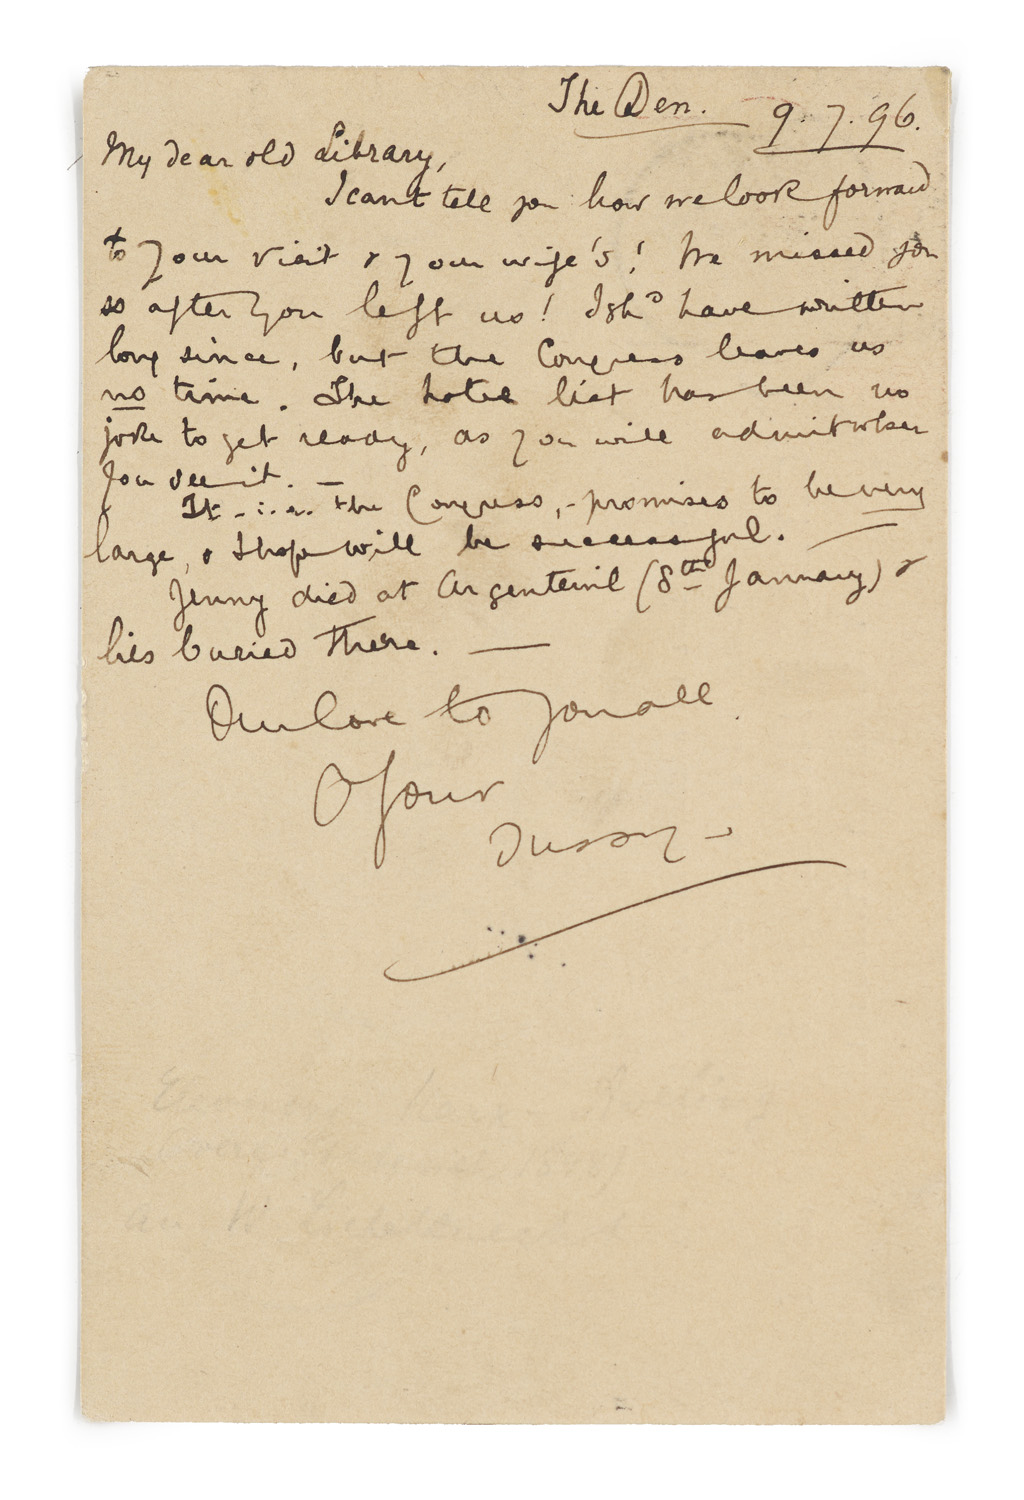 The Den. 9. 7. 96.
My dear old Library,
I can't tell you how we look forward
to your visit & your wife's! We missed you
so after you left us! I shd have written
long since, but the Congress leaves us
no time. The hotel list has been no
joke to get ready, as you will admit when
you see it. —
It - i.e. the Congress, - promises to be very
large, & I hope will be successful. —
Jenny died at Argenteuil (8th January) &
lies buried there. —
Our love to you all
Your
Tussy —